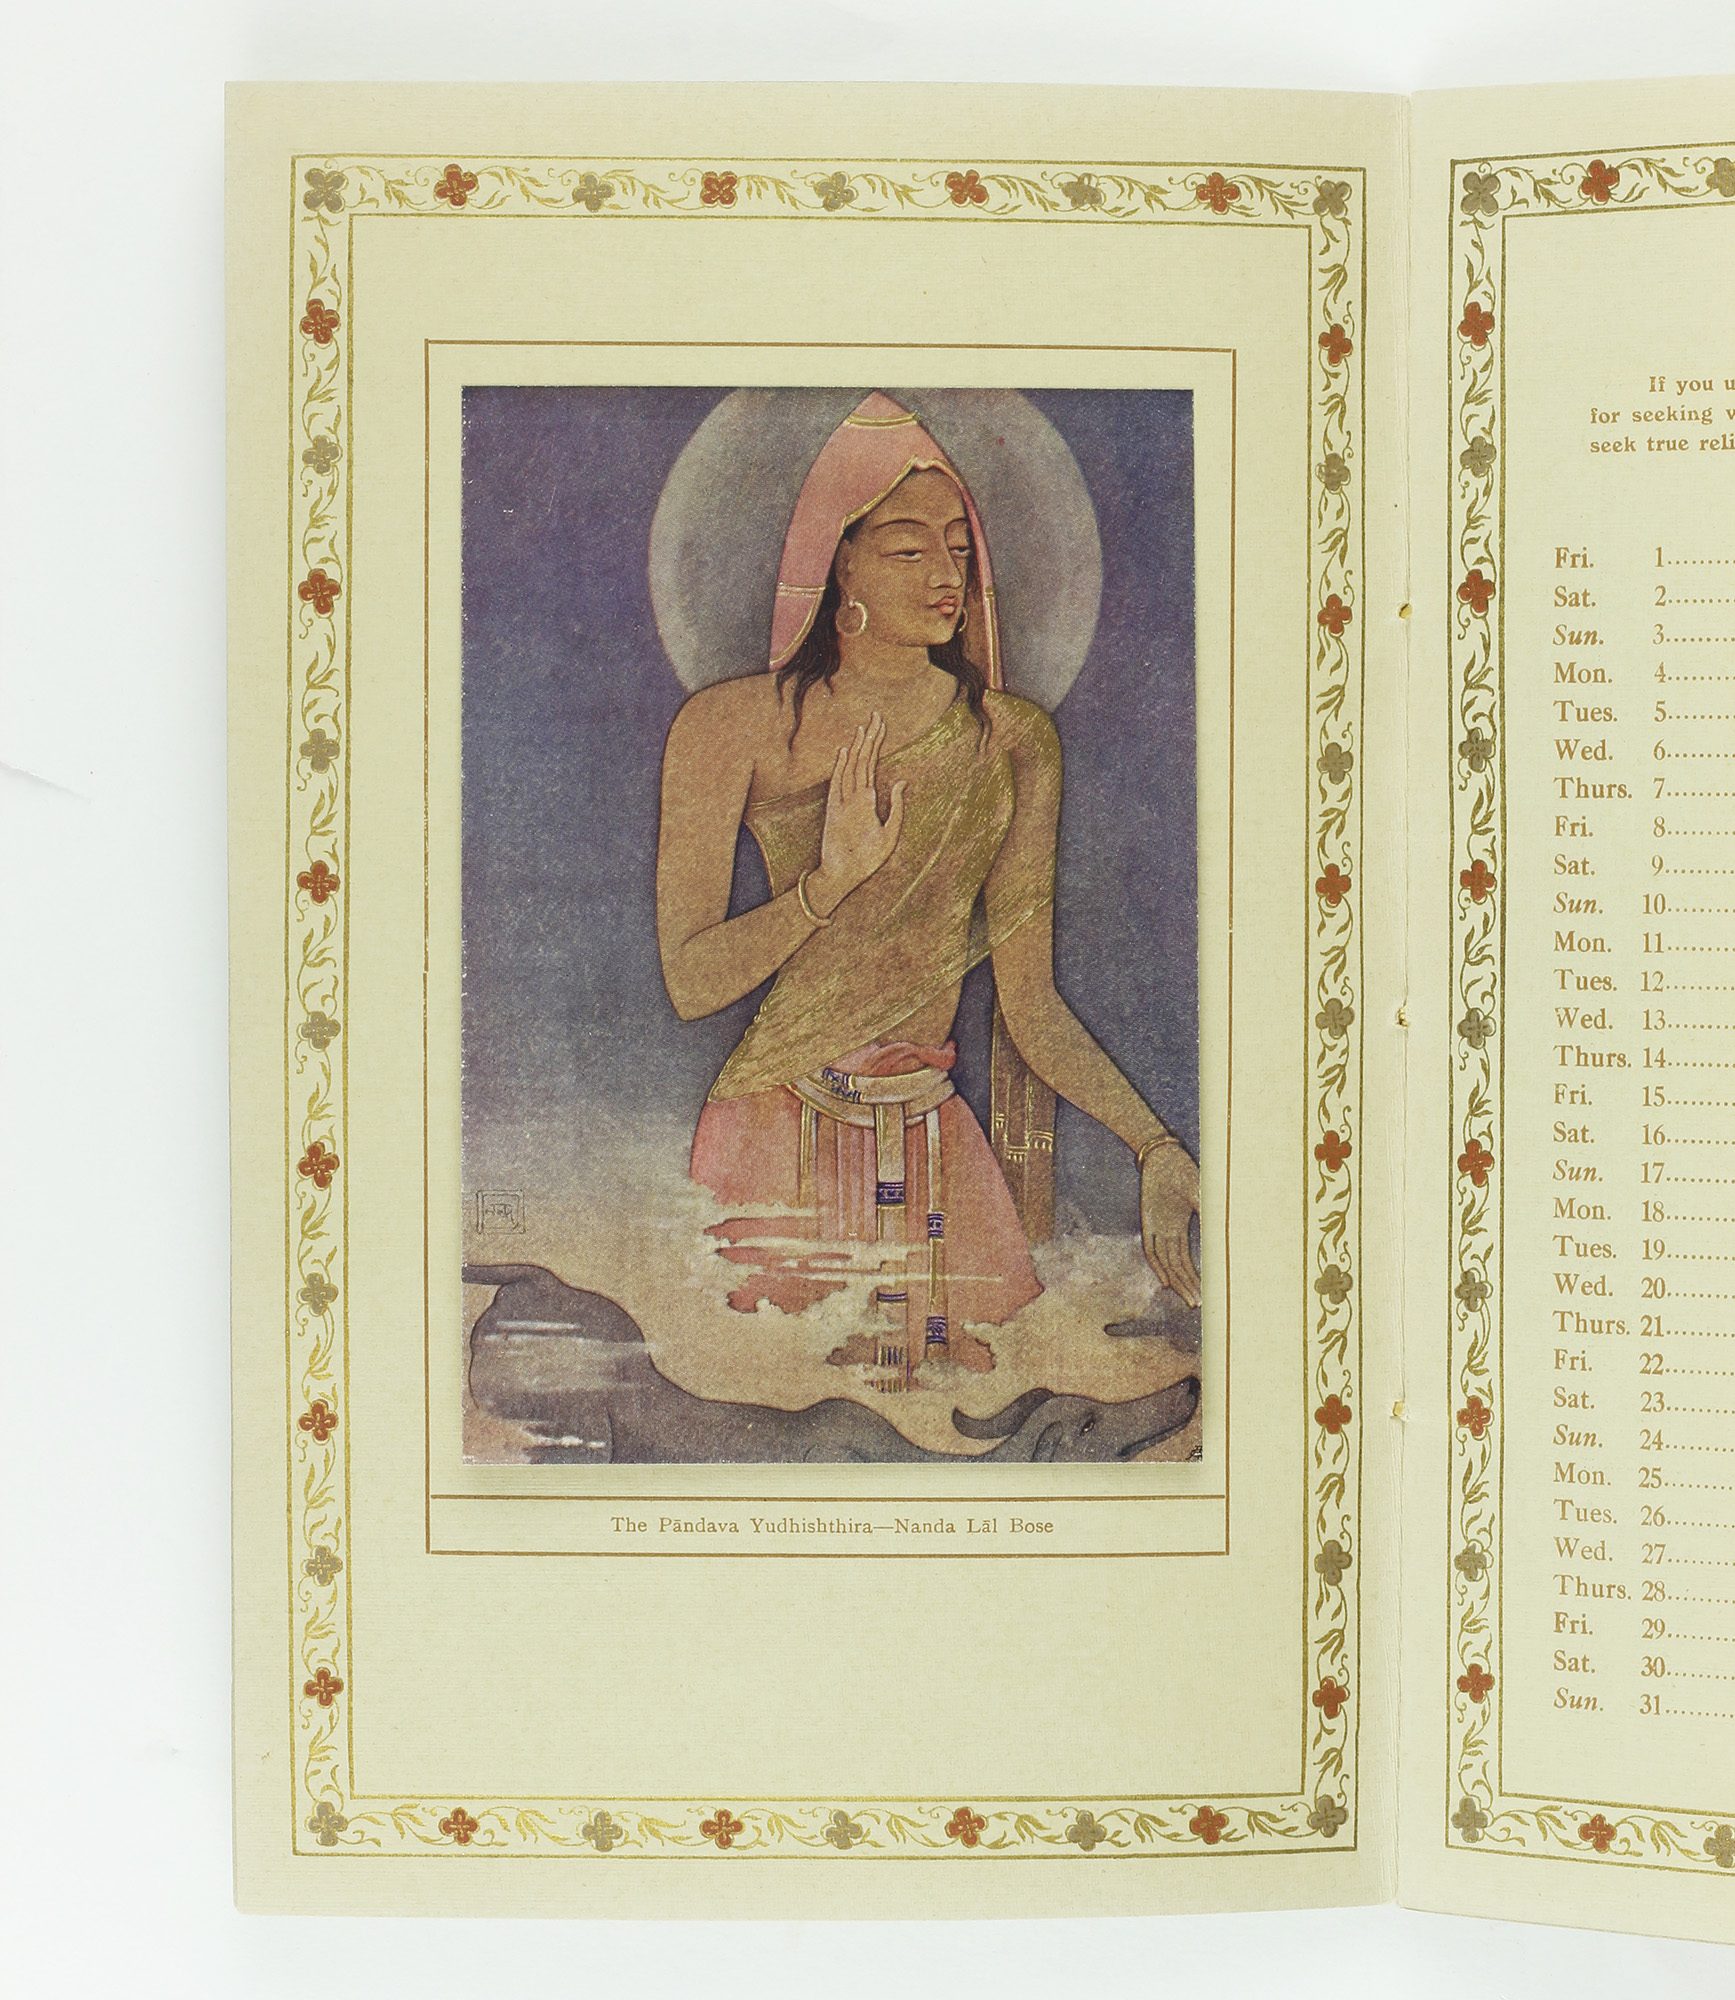 The Pāndava Yudhishthira—Nanda Lāl Bose
If you
for seeking
seek true
Fri. 1
Sat. 2
Sun. 3
Mon. 4
Tues. 5
Wed. 6
Thurs. 7
Fri. 8
Sat. 9
Sun. 10
Mon. 11
Tues. 12
Wed. 13
Thurs. 14
Fri. 15
Sat. 16
Sun. 17
Mon. 18
Tues. 19
Wed. 20
Thurs. 21
Fri. 22
Sat. 23
Sun. 24
Mon. 25
Tues. 26
Wed. 27
Thurs. 28
Fri. 29
Sat. 30
Sun. 31